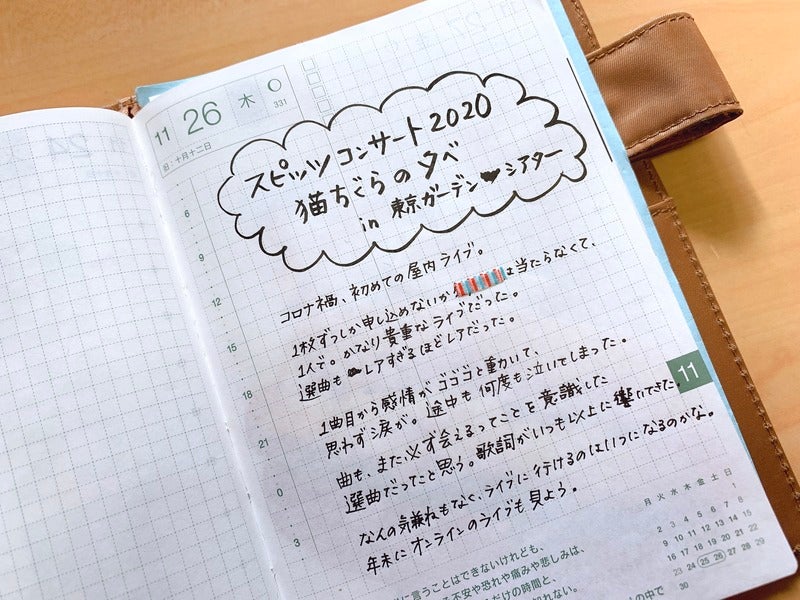 11 26 木
331
旧:十月十二日
スピッツ コンサート2020
猫ちぐらの夕べ
in 東京ガーデン シアター
コロナ禍、初めての屋内ライブ。
1枚ずつしか申し込めないが は当たらなくて、
1人で。かなり貴重なライブだった。
選曲も レアすぎるほどレアだった。
1曲目から感情がゴゴゴと動いて、
思わず涙が。途中も何度も泣いてしまった。
曲も、また必ず会えるってことを意識した
選曲だってと思う。歌詞がいつも以上に響いてきた。
なんの気兼ねもなく、ライブに行けるのはいつになるのかな。
年末にオンラインのライブも見よう。
6
9
12
15
18
21
0
3
11
月 火 水 木 金 土 日
1
2 3 4 5 6 7 8
9 10 11 12 13 14 15
16 17 18 19 20 21 22
23 24 25 26 27 28 29
30
に言うことはできないけれども、
る不安や恐れや痛みや悲しみは、
だけの時間と、
れない。
の中で
24